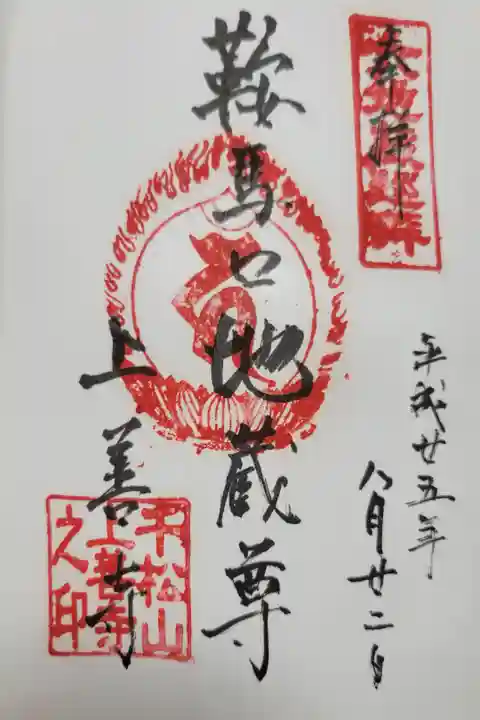 奉拝
六地蔵巡拝
平成廿五年
八月廿二日
鞍馬口地蔵尊
上善寺
千松山
上善寺
之印